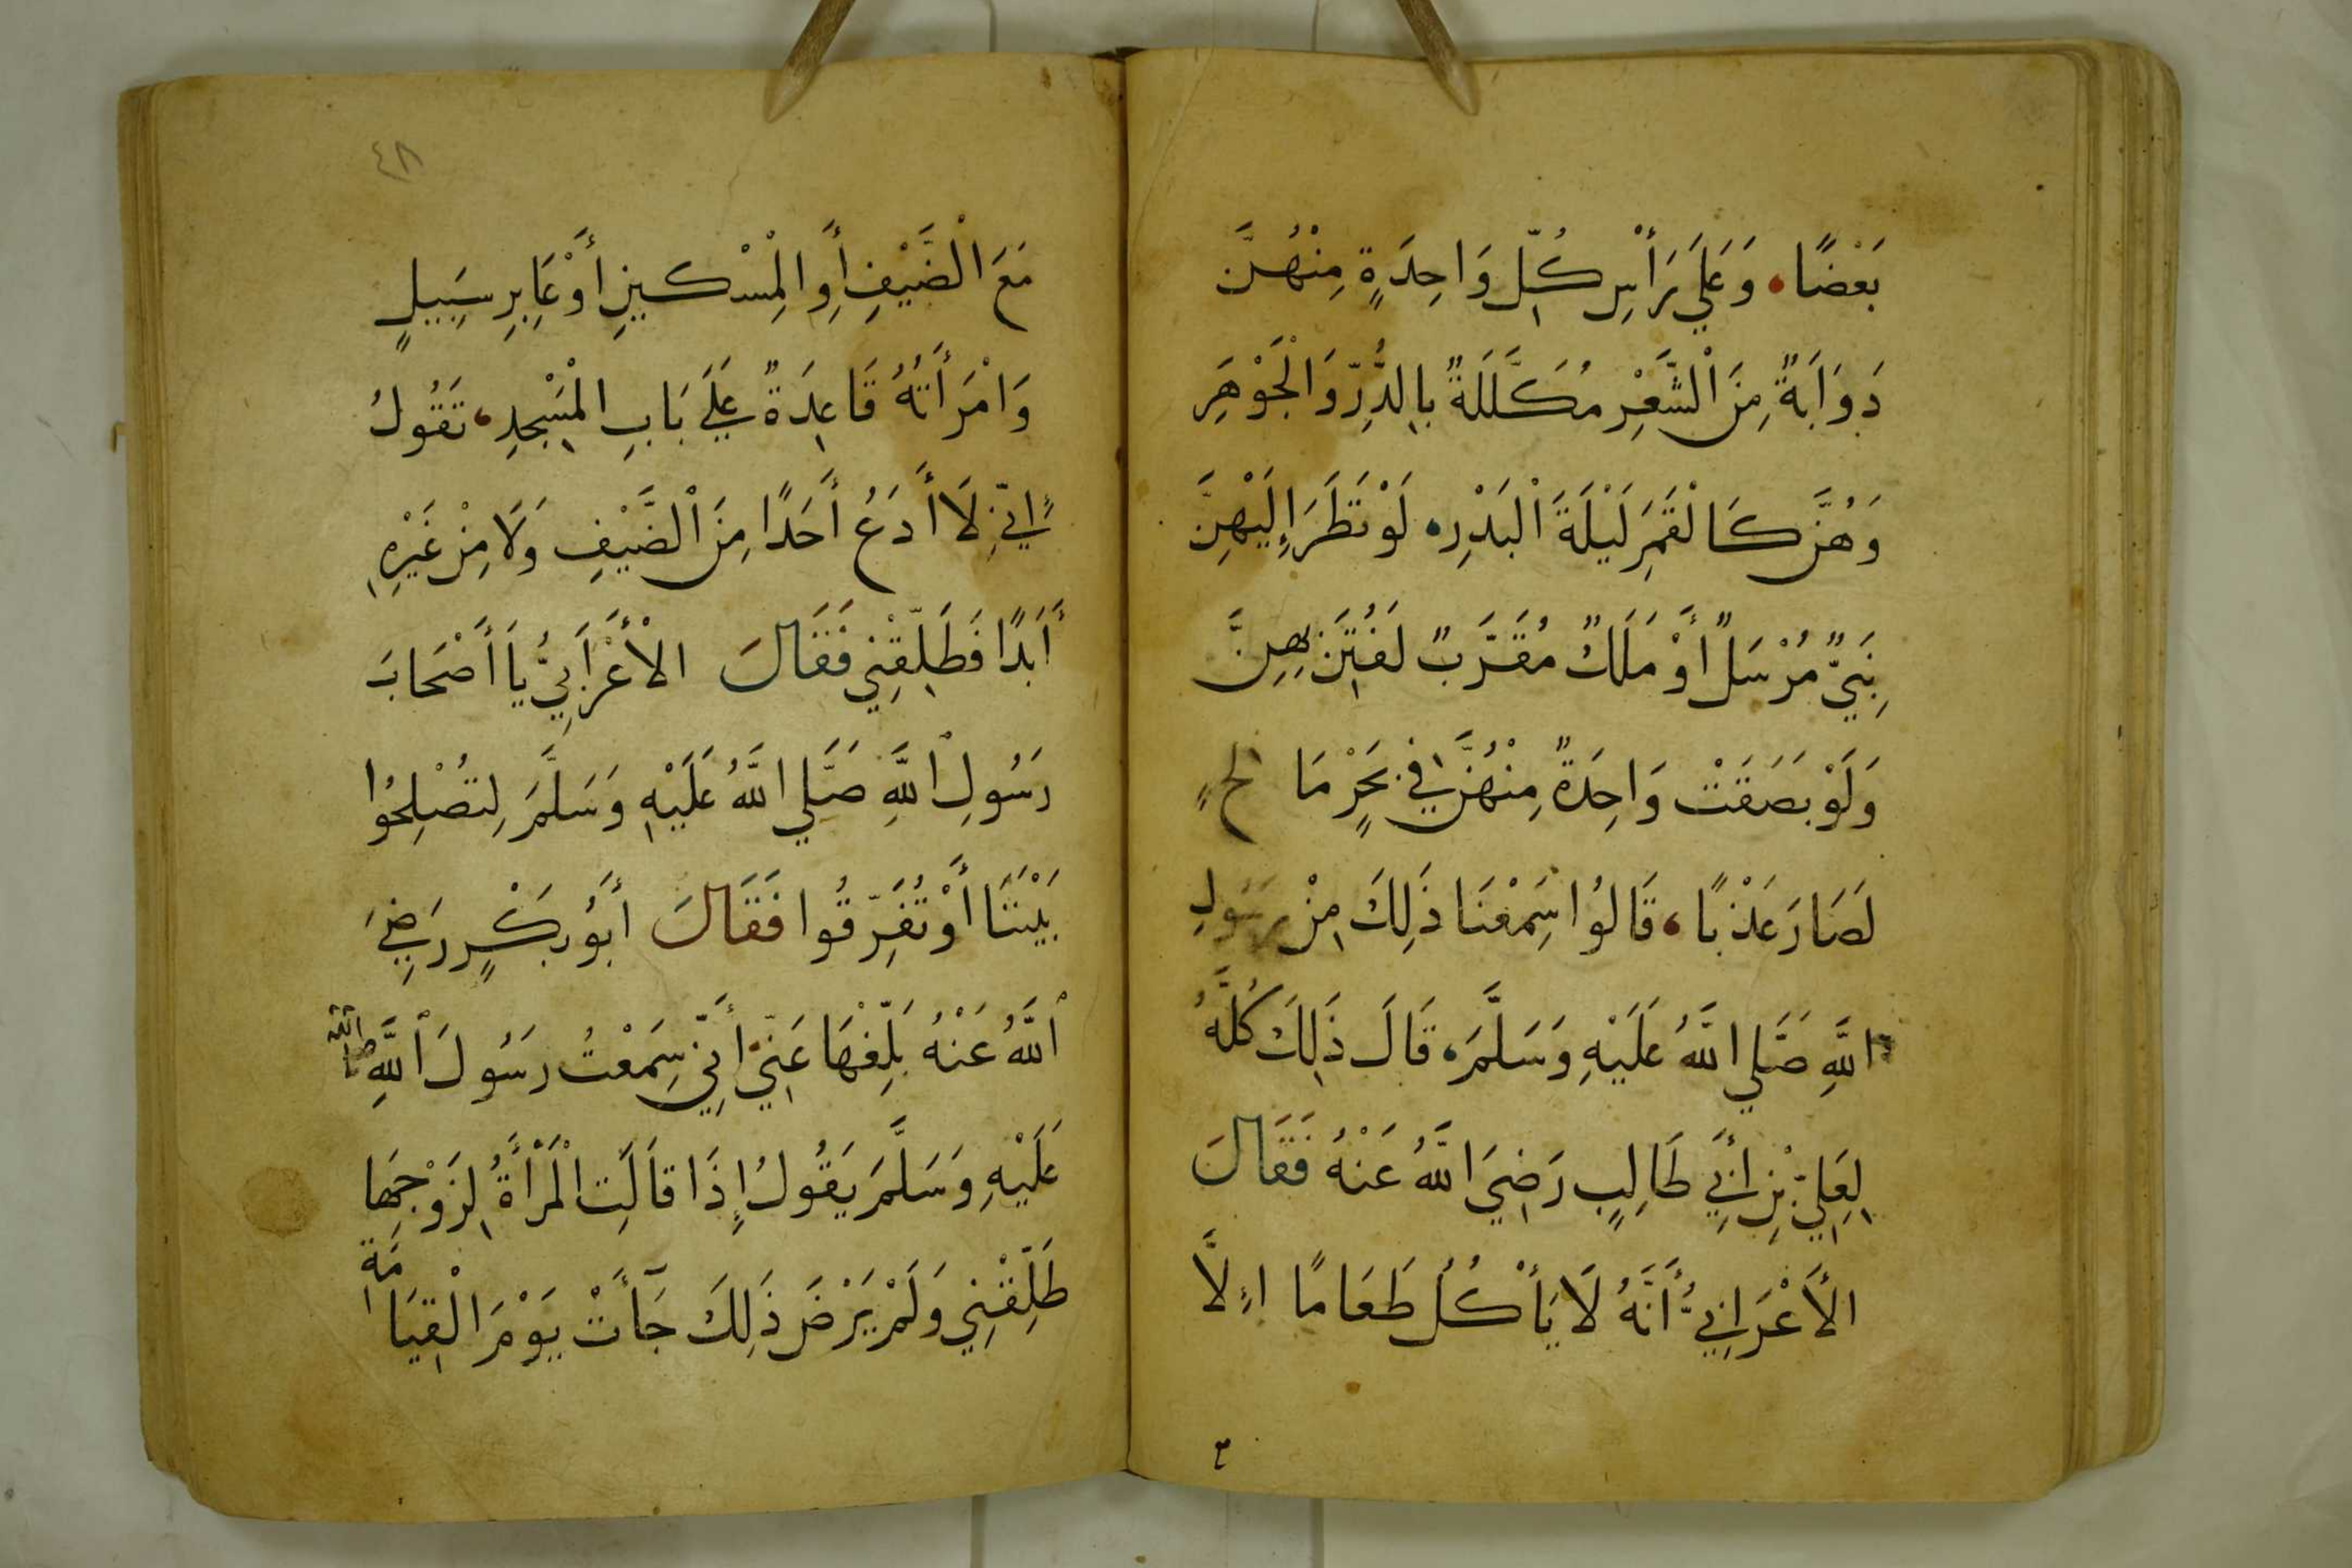 بَعْضًا، وَعَلَي رَأْسِ كُلِّ وَاحِدَةٍ مِنْهُنَّ
دَوَابَةً مِنَ الْشَّعْرِ مُكَلَّلَةً بِالدُّرِّ وَالْجَوْهَرِ
وَهُنَّ كَالْقَمَرِ لَيْلَةَ الْبَدْرِ، لَوْ نَظَرَ إِلَيْهِنَّ
نَبِيٌّ مُرْسَلٌ أَوْ مَلَكٌ مُقَرَّبٌ لَفُتِنَ بِهِنَّ
وَلَوْ بَصَقَتْ وَاحِدَةٌ مِنْهُنَّ فِي بَحْرٍ مَالِحٍ
لَصَارَ عَذْبًا، قَالُوا سَمِعْنَا ذَلِكَ مِنْ رَسُولِ
اللَّهِ صَلَّي اللَّهُ عَلَيْهِ وَسَلَّمَ، قَالَ ذَلِكَ كُلَّهُ
لِعَلِيِّ بْنِ أَبِي طَالِبٍ رَضِيَ اللَّهُ عَنْهُ فَقَالَ
الأَعْرَابِيُّ أَنَّهُ لَا يَأْكُلُ طَعَامًا اِلَّا
ع
٤٨
مَعَ الْضَّيْفِ أَوِ الْمِسْكِينِ أَوْ عَابِرِ سَبِيلٍ
وَامْرَأَتُهُ قَاعِدَةً عَلَي بَابِ الْمَسْجِدِ، تَقُولُ
اِنِّي لَا أَدَعُ أَحَدًا مِنَ الْضَّيْفِ وَلَا مِنْ غَيْرِهِ
أَبَدًا فَطَلِّقْنِي فَقَالَ الْأَعْرَابِيُّ يَا أَصْحَابَ
رَسُولِ اللَّهِ صَلَّي اللَّهُ عَلَيْهِ وَسَلَّمَ لِتُصْلِحُوا
بَيْنَنَا أَوْ تُفَرِّقُوا فَقَالَ أَبُو بَكْرٍ رَضِيَ
اللَّهُ عَنْهُ بَلِّغْهَا عَنِّي أَنِّي سَمِعْتُ رَسُولَ اللَّهِ صلى الله
عَلَيْهِ وَسَلَّمَ يَقُولُ إِذَا قَالَتِ الْمَرْأَةُ لِزَوْجِهَا
طَلِّقْنِي وَلَمْ يَرْضَ ذَلِكَ جَآءَتْ يَوْمَ الْقِيَامَةِ